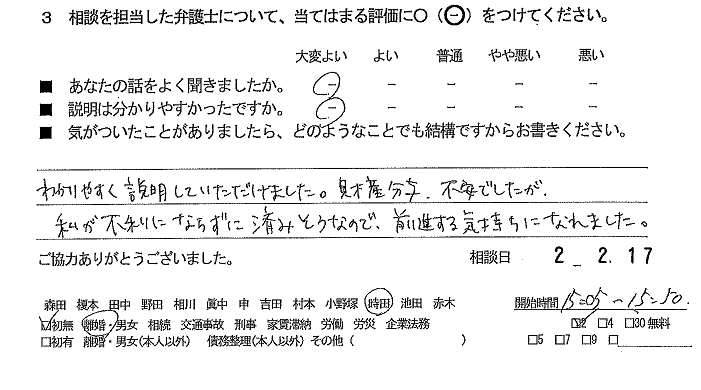 3 相談を担当した弁護士について、当てはまる評価に〇（㊀）をつけてください。
大変よい よい 普通 やや悪い 悪い
■ あなたの話をよく聞きましたか。 － － － － －
■ 説明は分かりやすかったですか。 － － － － －
■ 気がついたことがありましたら、どのようなことでも結構ですからお書きください。
わかりやすく説明していただけました。財産分与、不安でしたが、
私が不利にならずに済みそうなので、前進する気持ちになれました。
ご協力ありがとうございました。 相談日 2_ 2.17
森田 榎本 田中 野田 相川 眞中 申 吉田 村本 小野塚 時田 池田 赤木 開始時間 15:05～15:50.
☑初無 離婚・男女 相続 交通事故 刑事 家賃滞納 労働 労災 企業法務 ☑2 □4 □30無料
□初有 離婚・男女(本人以外) 債務整理(本人以外) その他 ( ) □5 □7 □9 □